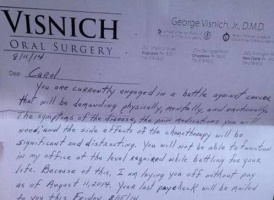 VISNICH
ORAL SURGERY
George Visnich, Jr., D.M.D
8/11/14
Dear Carol
You are currently engaged in a battle against cancer
that will be demanding physically, mentally, and emotionally.
The symptoms of the disease, the pain medications you will
need, and the side effects of the chemotherapy will be
significant and distracting. You will not be able to function
in my office at the level required while battling for your
life. Because of this, I am laying you off without pay
as of August 11, 2014. Your last paycheck will be mailed
to you this Friday 8/15/14